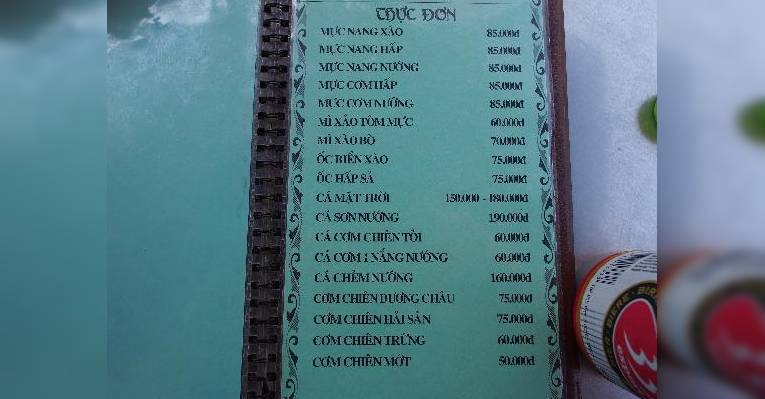 THỰC ĐƠN
MỰC NANG XÀO 85.000đ
MỰC NANG HẤP 85.000đ
MỰC NANG NƯỚNG 85.000đ
MỰC CƠM HẤP 85.000đ
MỰC CƠM NƯỚNG 85.000đ
MÌ XÀO TÔM MỰC 60.000đ
MÌ XÀO BÒ 70.000đ
ỐC BIỂN XÀO 75.000đ
ỐC HẤP SẢ 75.000đ
CÁ MẶT TRỜI 150.000 - 180.000đ
CÁ SƠN NƯỚNG 190.000đ
CÁ CƠM CHIÊN TỎI 60.000đ
CÁ CƠM 1 NẮNG NƯỚNG 60.000đ
CÁ CHẼM NƯỚNG 160.000đ
CƠM CHIÊN DƯƠNG CHÂU 75.000đ
CƠM CHIÊN HẢI SẢN 75.000đ
CƠM CHIÊN TRỨNG 60.000đ
CƠM CHIÊN MỚT 50.000đ